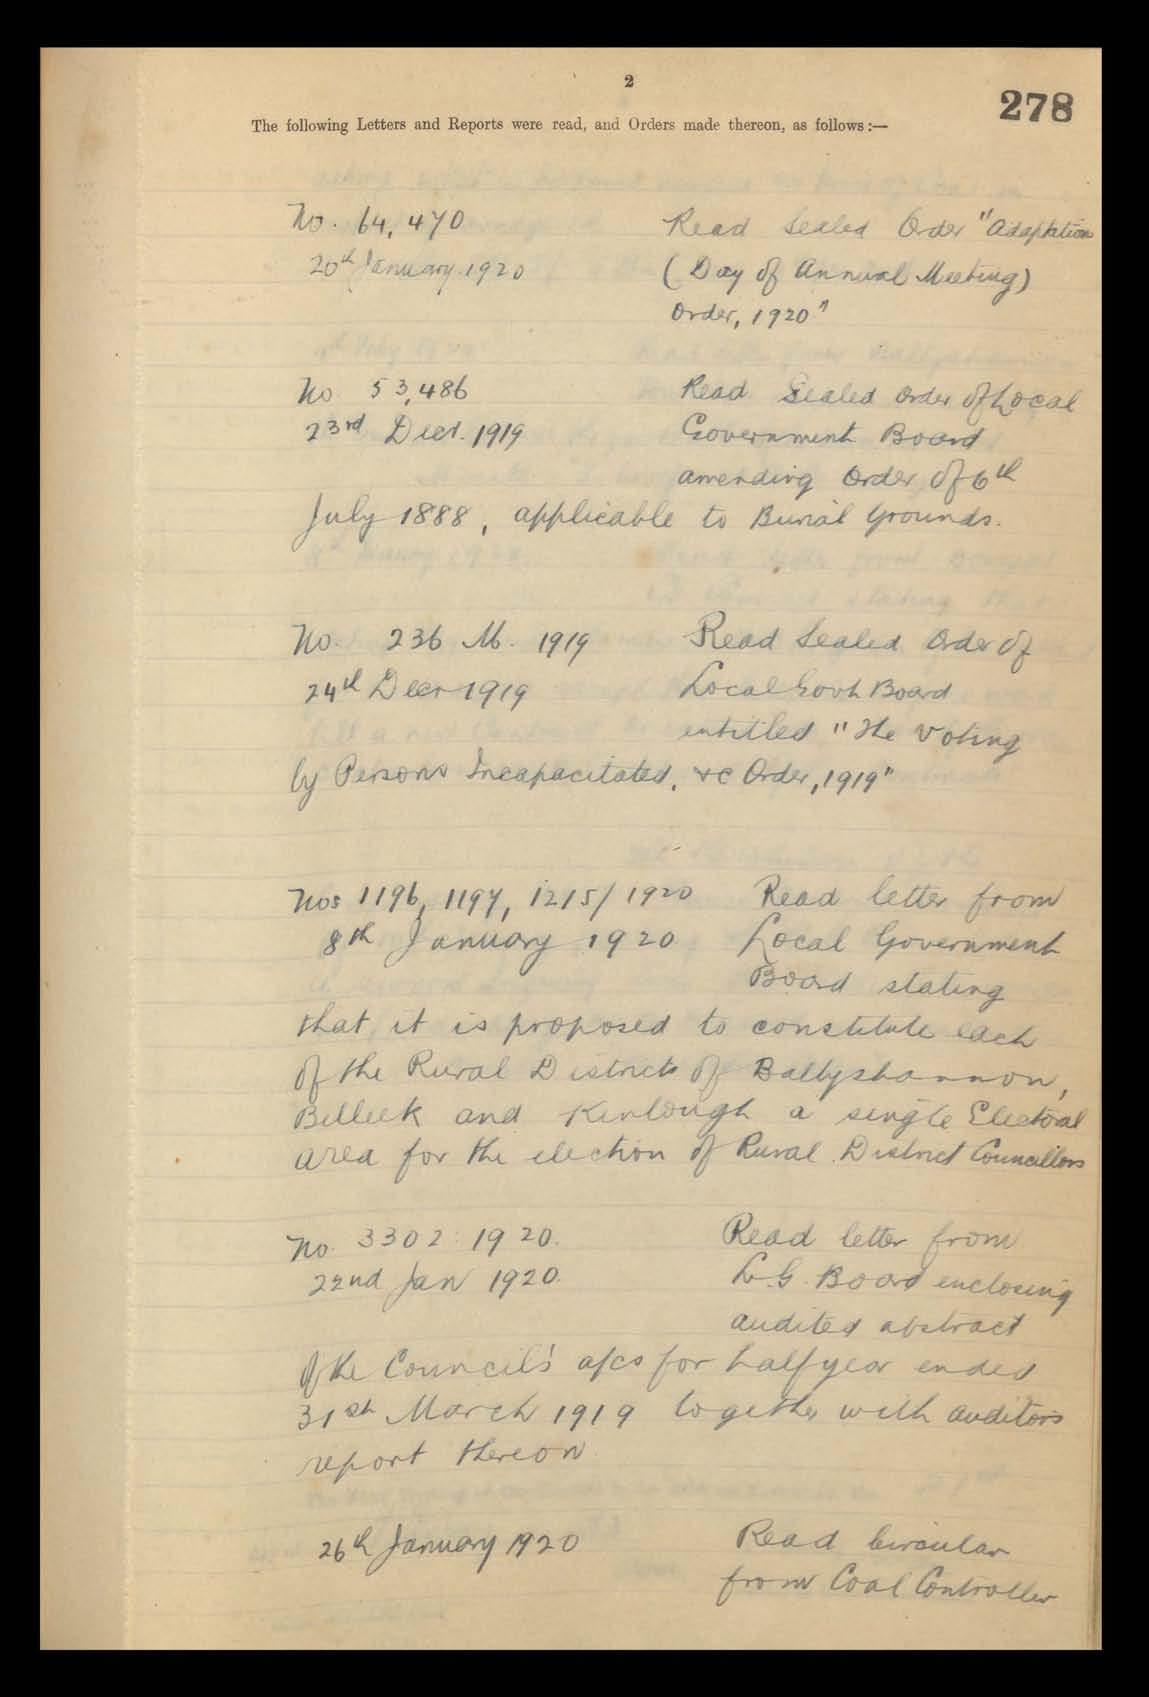 2
278
The following Letters and Reports were read, and Orders made thereon, as follows:—
No. 64,470 Read Sealed Order "Adaptation
20th January 1920 (Day of Annual Meeting)
Order, 1920"
No 53,486 Read Sealed Order of Local
23rd Decr. 1919 Government Board
amending Order of 6th
July 1888, applicable to Burial Grounds.
No. 236 M. 1919 Read Sealed Order of
24th Decr 1919 Local Govt Board
entitled "The Voting
by Persons Incapacitated, &c Order, 1919"
Nos 1196, 1197, 1215/1920 Read letter from
8th January 1920 Local Government
Board stating
that it is proposed to constitute each
of the Rural Districts of Ballyshannon,
Belleek and Kinlough a single Electoral
area for the election of Rural District Councillors
No. 3302. 1920. Read letter from
22nd Jan 1920. L.G. Board enclosing
audited abstract
of the Council's a/cs for halfyear ended
31st March 1919 together with auditors
report thereon
26th January 1920 Read Circular
from Coal Controller